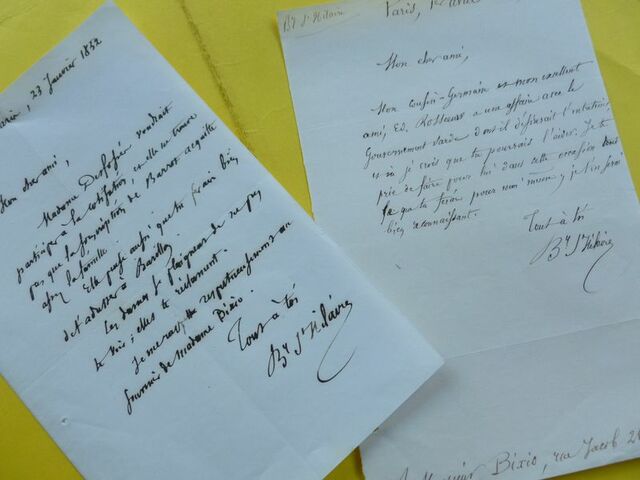 23 Janvier 1852
Mon cher ami,
Madame voudrait
participer à la cotisation, et elle ne trouve
pas que la souscription de Barrot acquitte
assez la famille.
Elle pense aussi que tu ferais bien
de t'adresser à
Les dames se plaignent de ne pas
te voir ; elles te réclament.
souvenir de Madame Bixio.
Tout à toi
By St Hilaire
By St Hilaire
Paris, 1er
Mon cher ami,
Mon Cousin-Germain et mon excellent
ami, Ed. a une affaire avec le
Gouvernement Sarde dont il désirerait
et je crois que tu pourrais l'aider. Je te
prie de faire pour lui dans cette occasion
ce que tu ferais pour moi même ; je t'en serai
bien reconnaissant.
Tout à toi
By St Hilaire
A Monsieur Bixio, rue Jacob 26